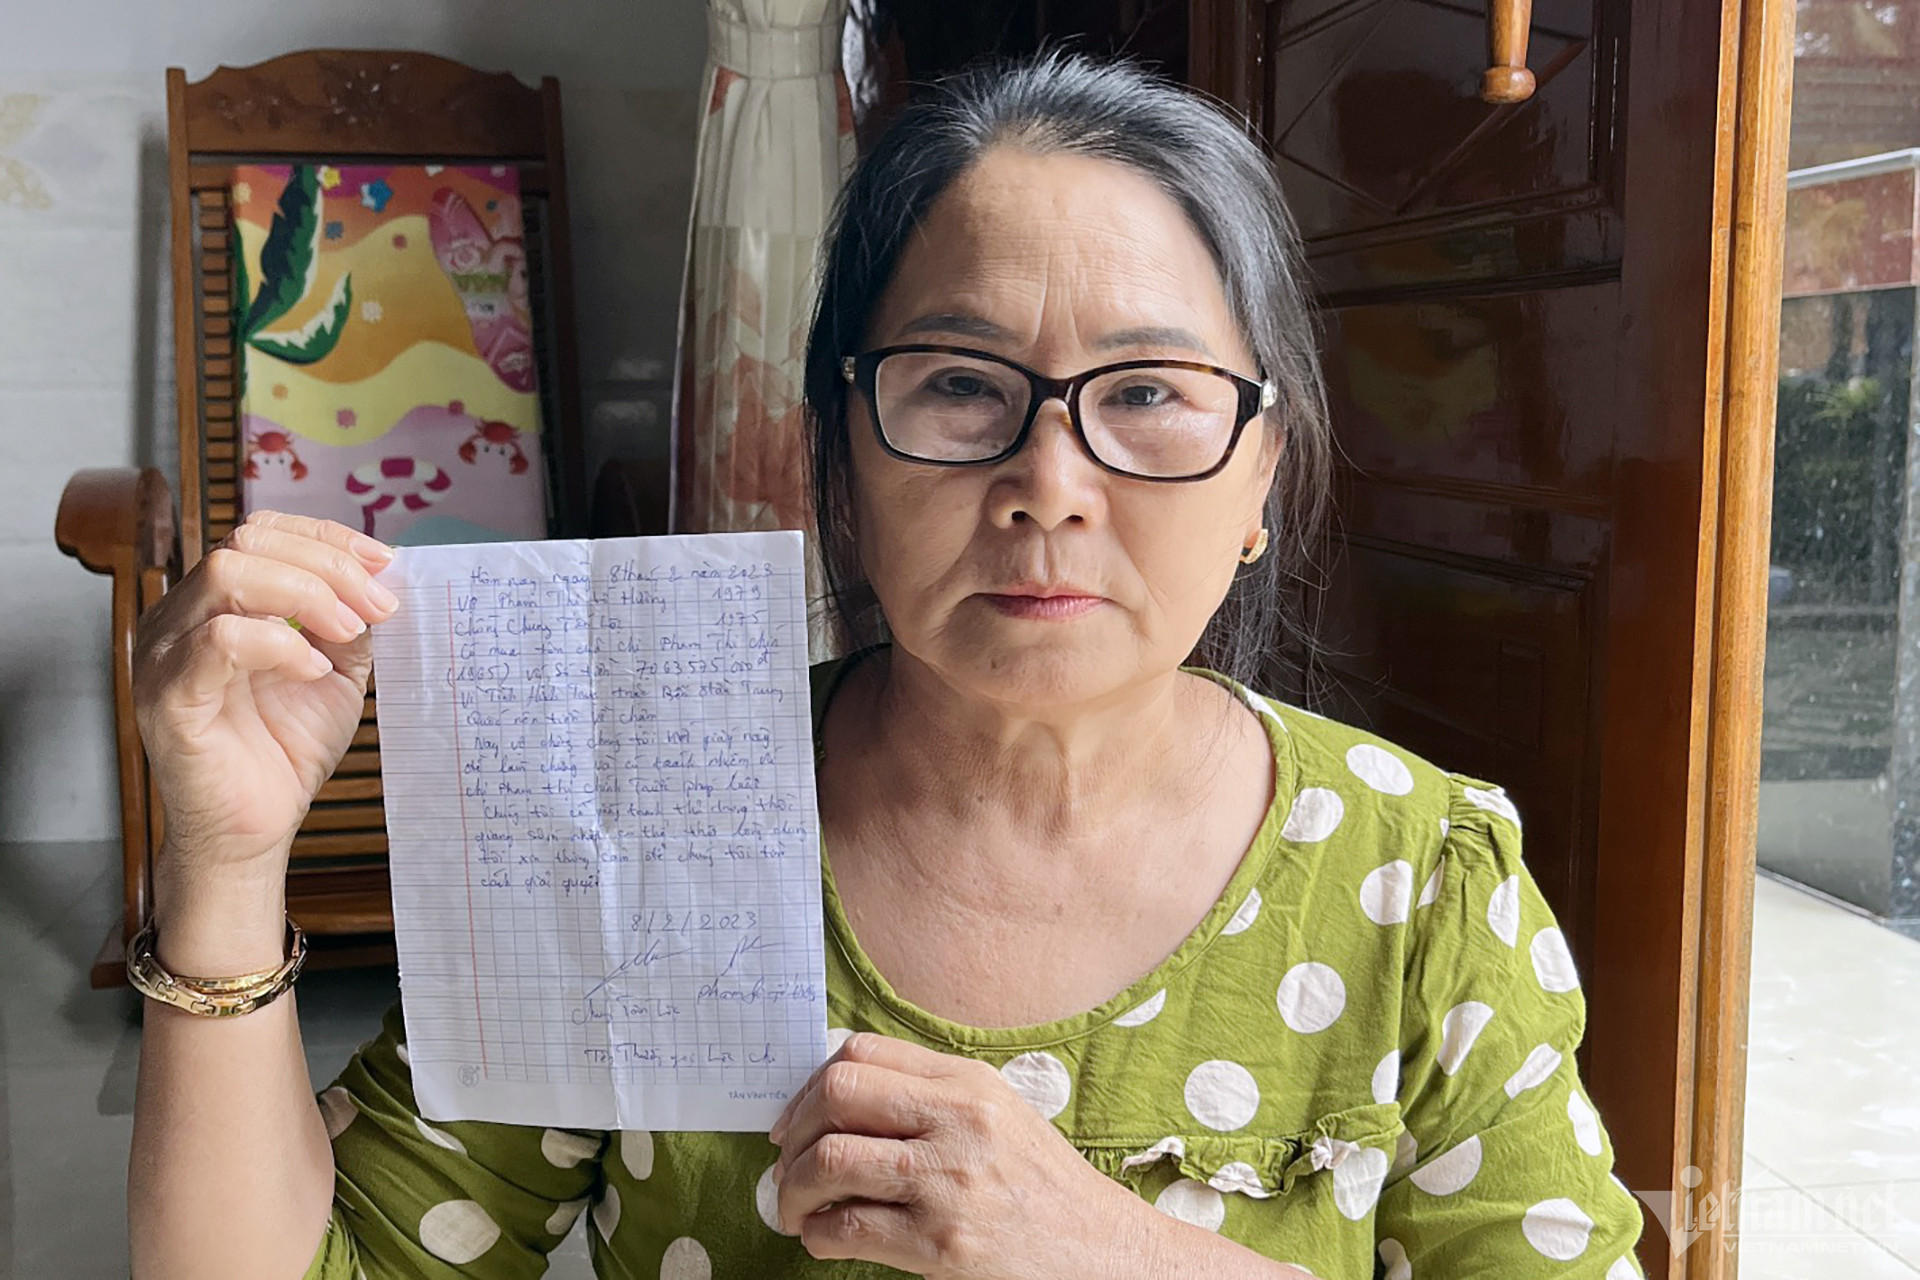 Hôm nay ngày 8 tháng 2 năm 2023
Vợ Phạm Thị Hường 1979
Chồng Chung Tấn Lộc 1975
Có mua tôm của chị Phạm Thị Chín
(1965) với số tiền 7063575000đ
Vì Tình Hình Tôm trục trặc Bên Trung
Quốc nên tiền về chậm
Nay vợ chồng chúng tôi viết giấy này
để làm chứng và có trách nhiệm với
chị Phạm thị Chín Trước pháp luật
Chúng tôi cố gắng tranh thủ trong thời
gian sớm nhất có thể thật lòng chúng
tôi xin thông cảm để chúng tôi tìm
cách giải quyết
8/2/2023
Chung Tấn Lộc Phạm
Tên Thường gọi Lộc
TÂN VĨNH TIẾN
Vietnamnet
VIETNAMNET.VN